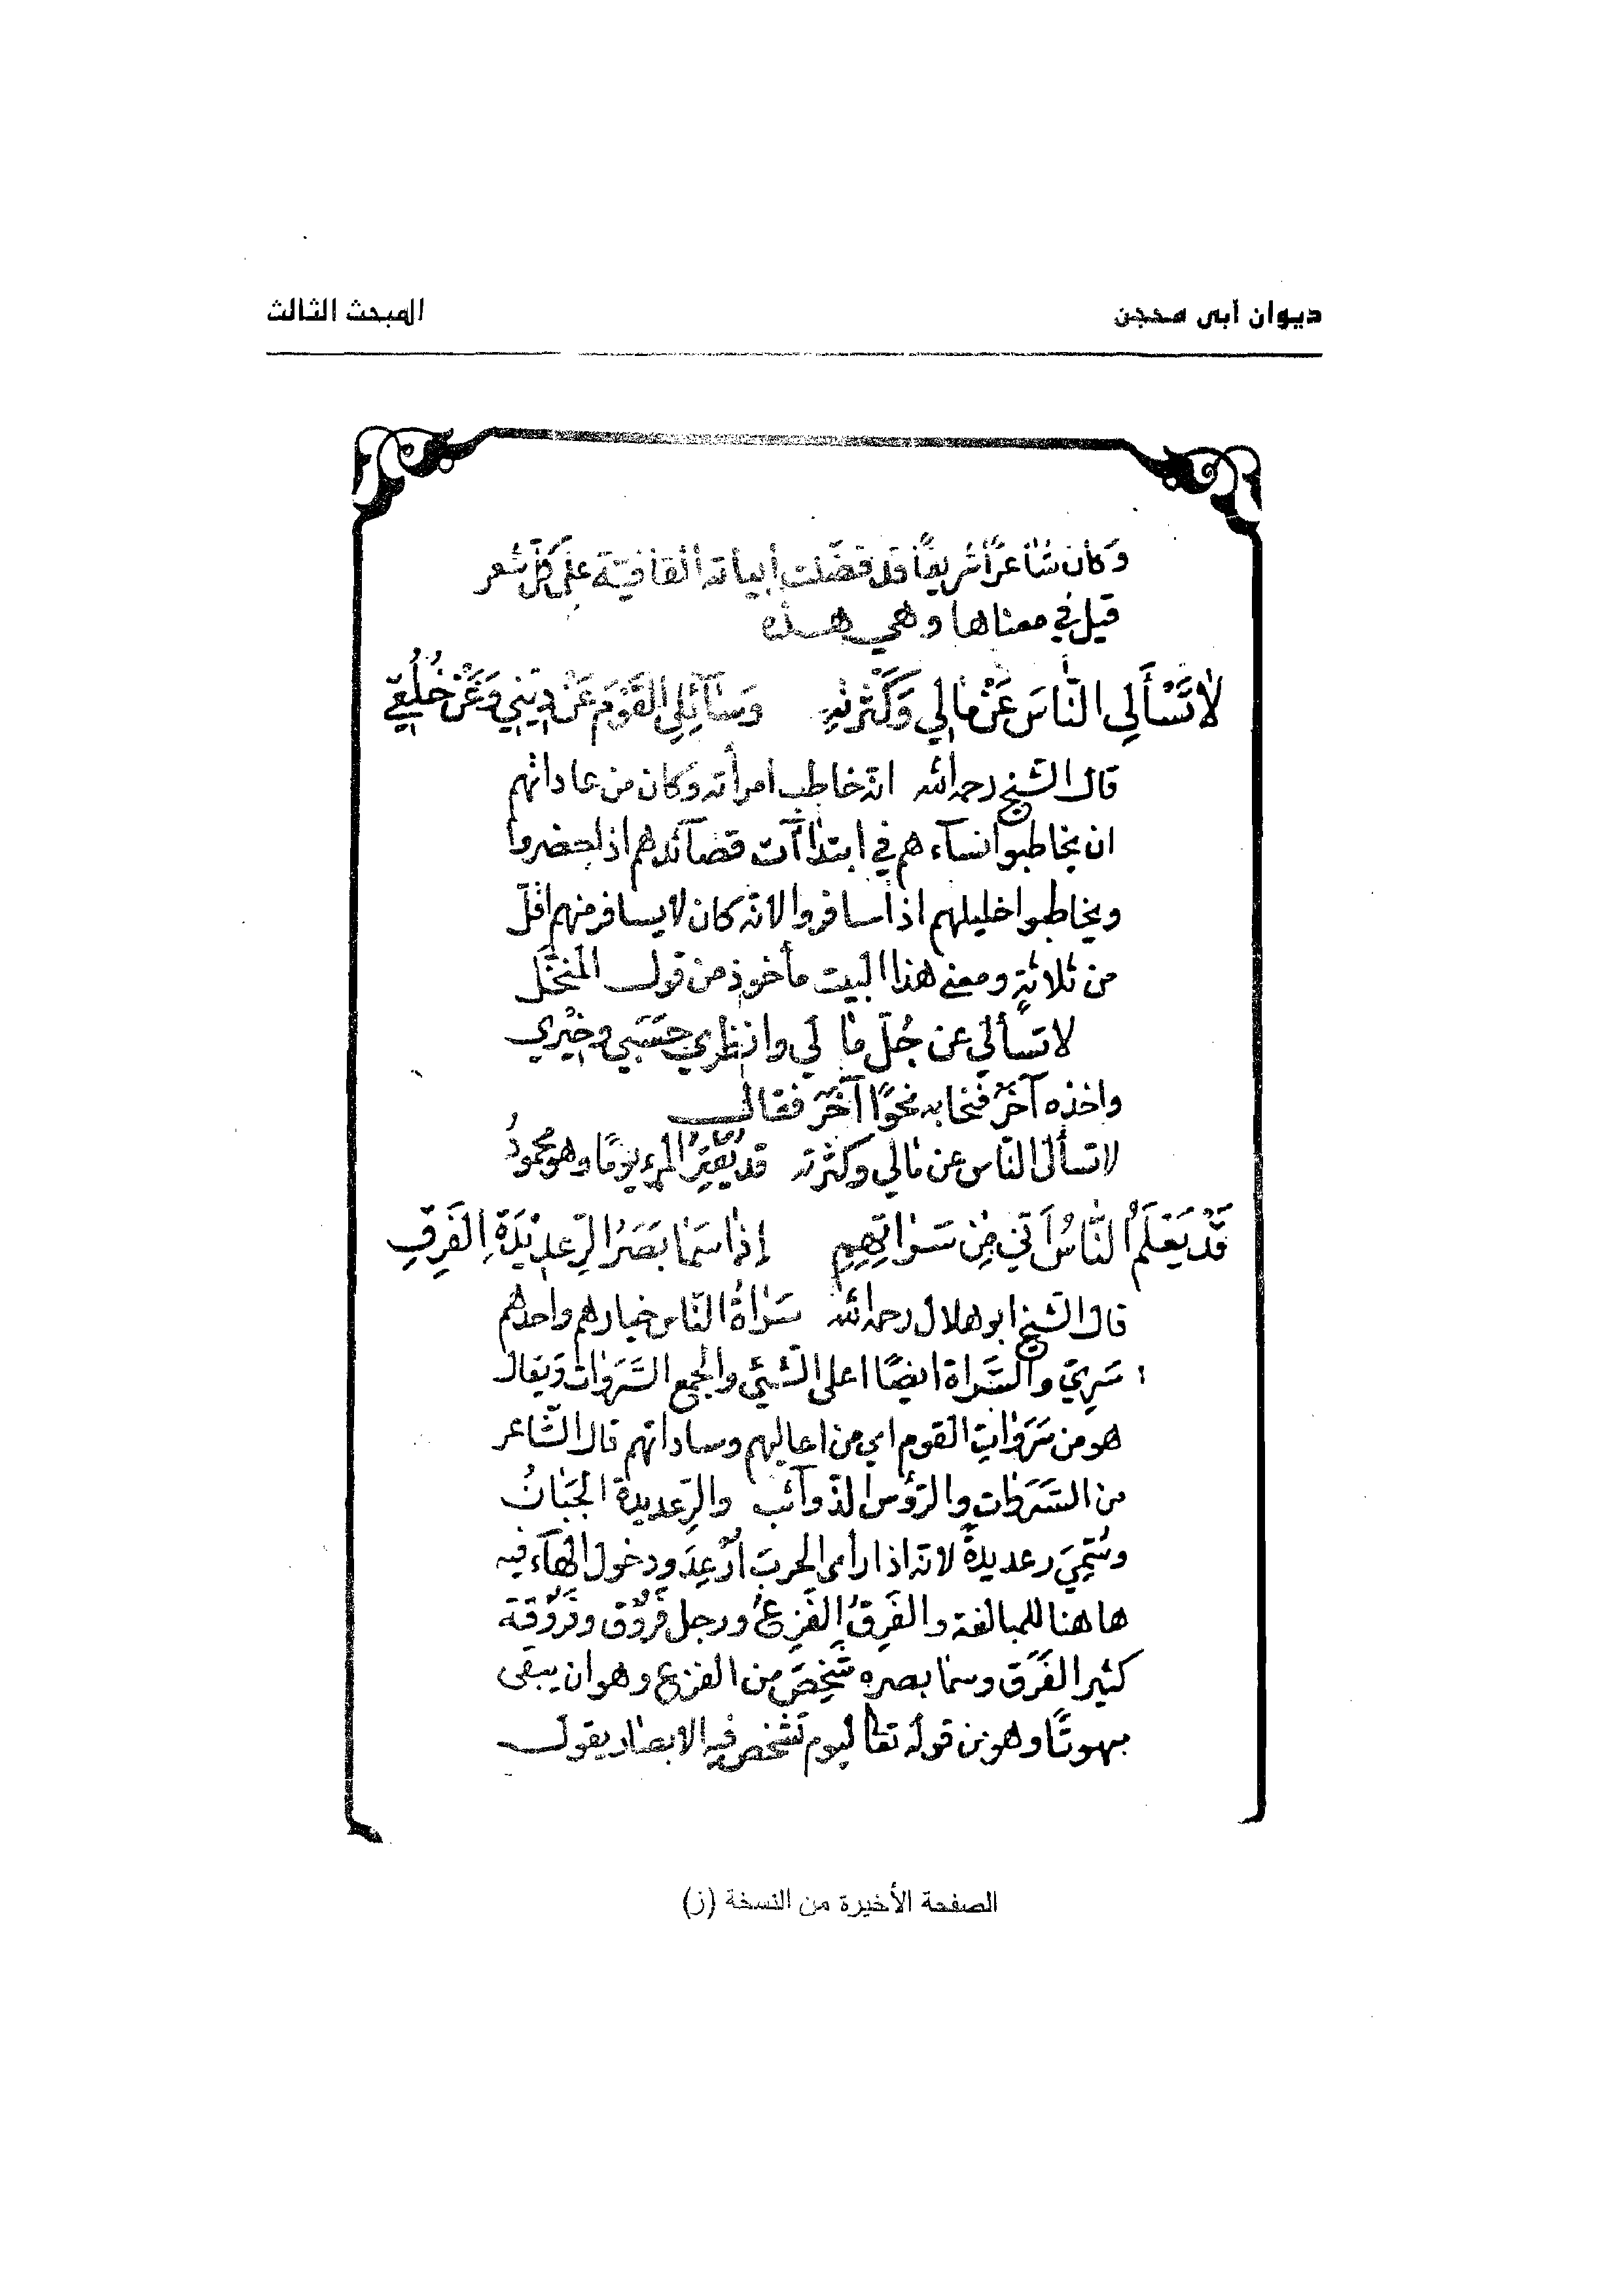 ديوان أبي محجن
المبحث الثالث
وكان شاعرًا شريفًا قد فضّلت أبياته القافيّة على كلّ شعر
قيل في معناها وهي هذه
لا تَسْأَلِي النّاسَ عَنْ مَالِي وَكَثْرَتِهِ وَسَآئِلِي القَوْمَ عَنْ دِيْنِي وَعَنْ خُلُقِي
قال الشيخ رحمه الله انّه خاطب امرأته وكان من عاداتهم
ان يخاطبوا نسآءهم في ابتداآت قصآئدهم اذا حضروا
ويخاطبوا خليلهم اذا سافروا لانّه كان لا يسافر منهم اقلّ
من ثلاثةٍ ومعنى هذا البيت مأخوذ من قول المنخّل
لا تسألي عن جُلّ مَا لي وانظري حَسَبي وخِيْري
واخذه آخَرُ فنحا به نحوًا آخَرَ فقال
لا تسألي النّاس عن مالي وكثرته قد يُقْتِرُ المرء يومًا وهو محمودُ
قَدْ يَعْلَمُ النَّاسُ أَنّي مِنْ سَرَاتِهِمِ إِذَا سَمَا بَصَرُ الرِّعْدِيْدَةِ الفَرِقِ
قال الشيخ ابو هلال رحمه الله سَرَاةُ النّاس خيارهم واحدهم
سَرِيّ والسَّراة ايضًا اعلى الشّيئ والجمع السَّرَوَات ويقال
هو من سَرَوَاتِ القوم اي من اعاليهم وساداتهم قال الشّاعر
من السَّرَوَات والرّؤس الذّوآئب والرِّعديدة الجَبَانُ
وسُمِّيَ رعديدةً لانّه اذا رأى الحربَ اُرْعِدَ ودخول الهآء فيه
ها هنا للمبالغة والفَرِقُ الفَزِعُ ورجل فَرُوْق وفَرُوْقة
كثير الفَرَق وسما بصره شَخَصَ من الفزع وهو ان يبقى
مبهوتًا وهو من قوله تعالى ليوم تشخص فيه الابصار يقول
الصفحة الأخيرة من النسخة (ز)